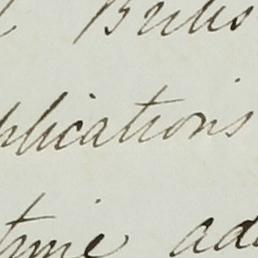 Britis
plications
time ad